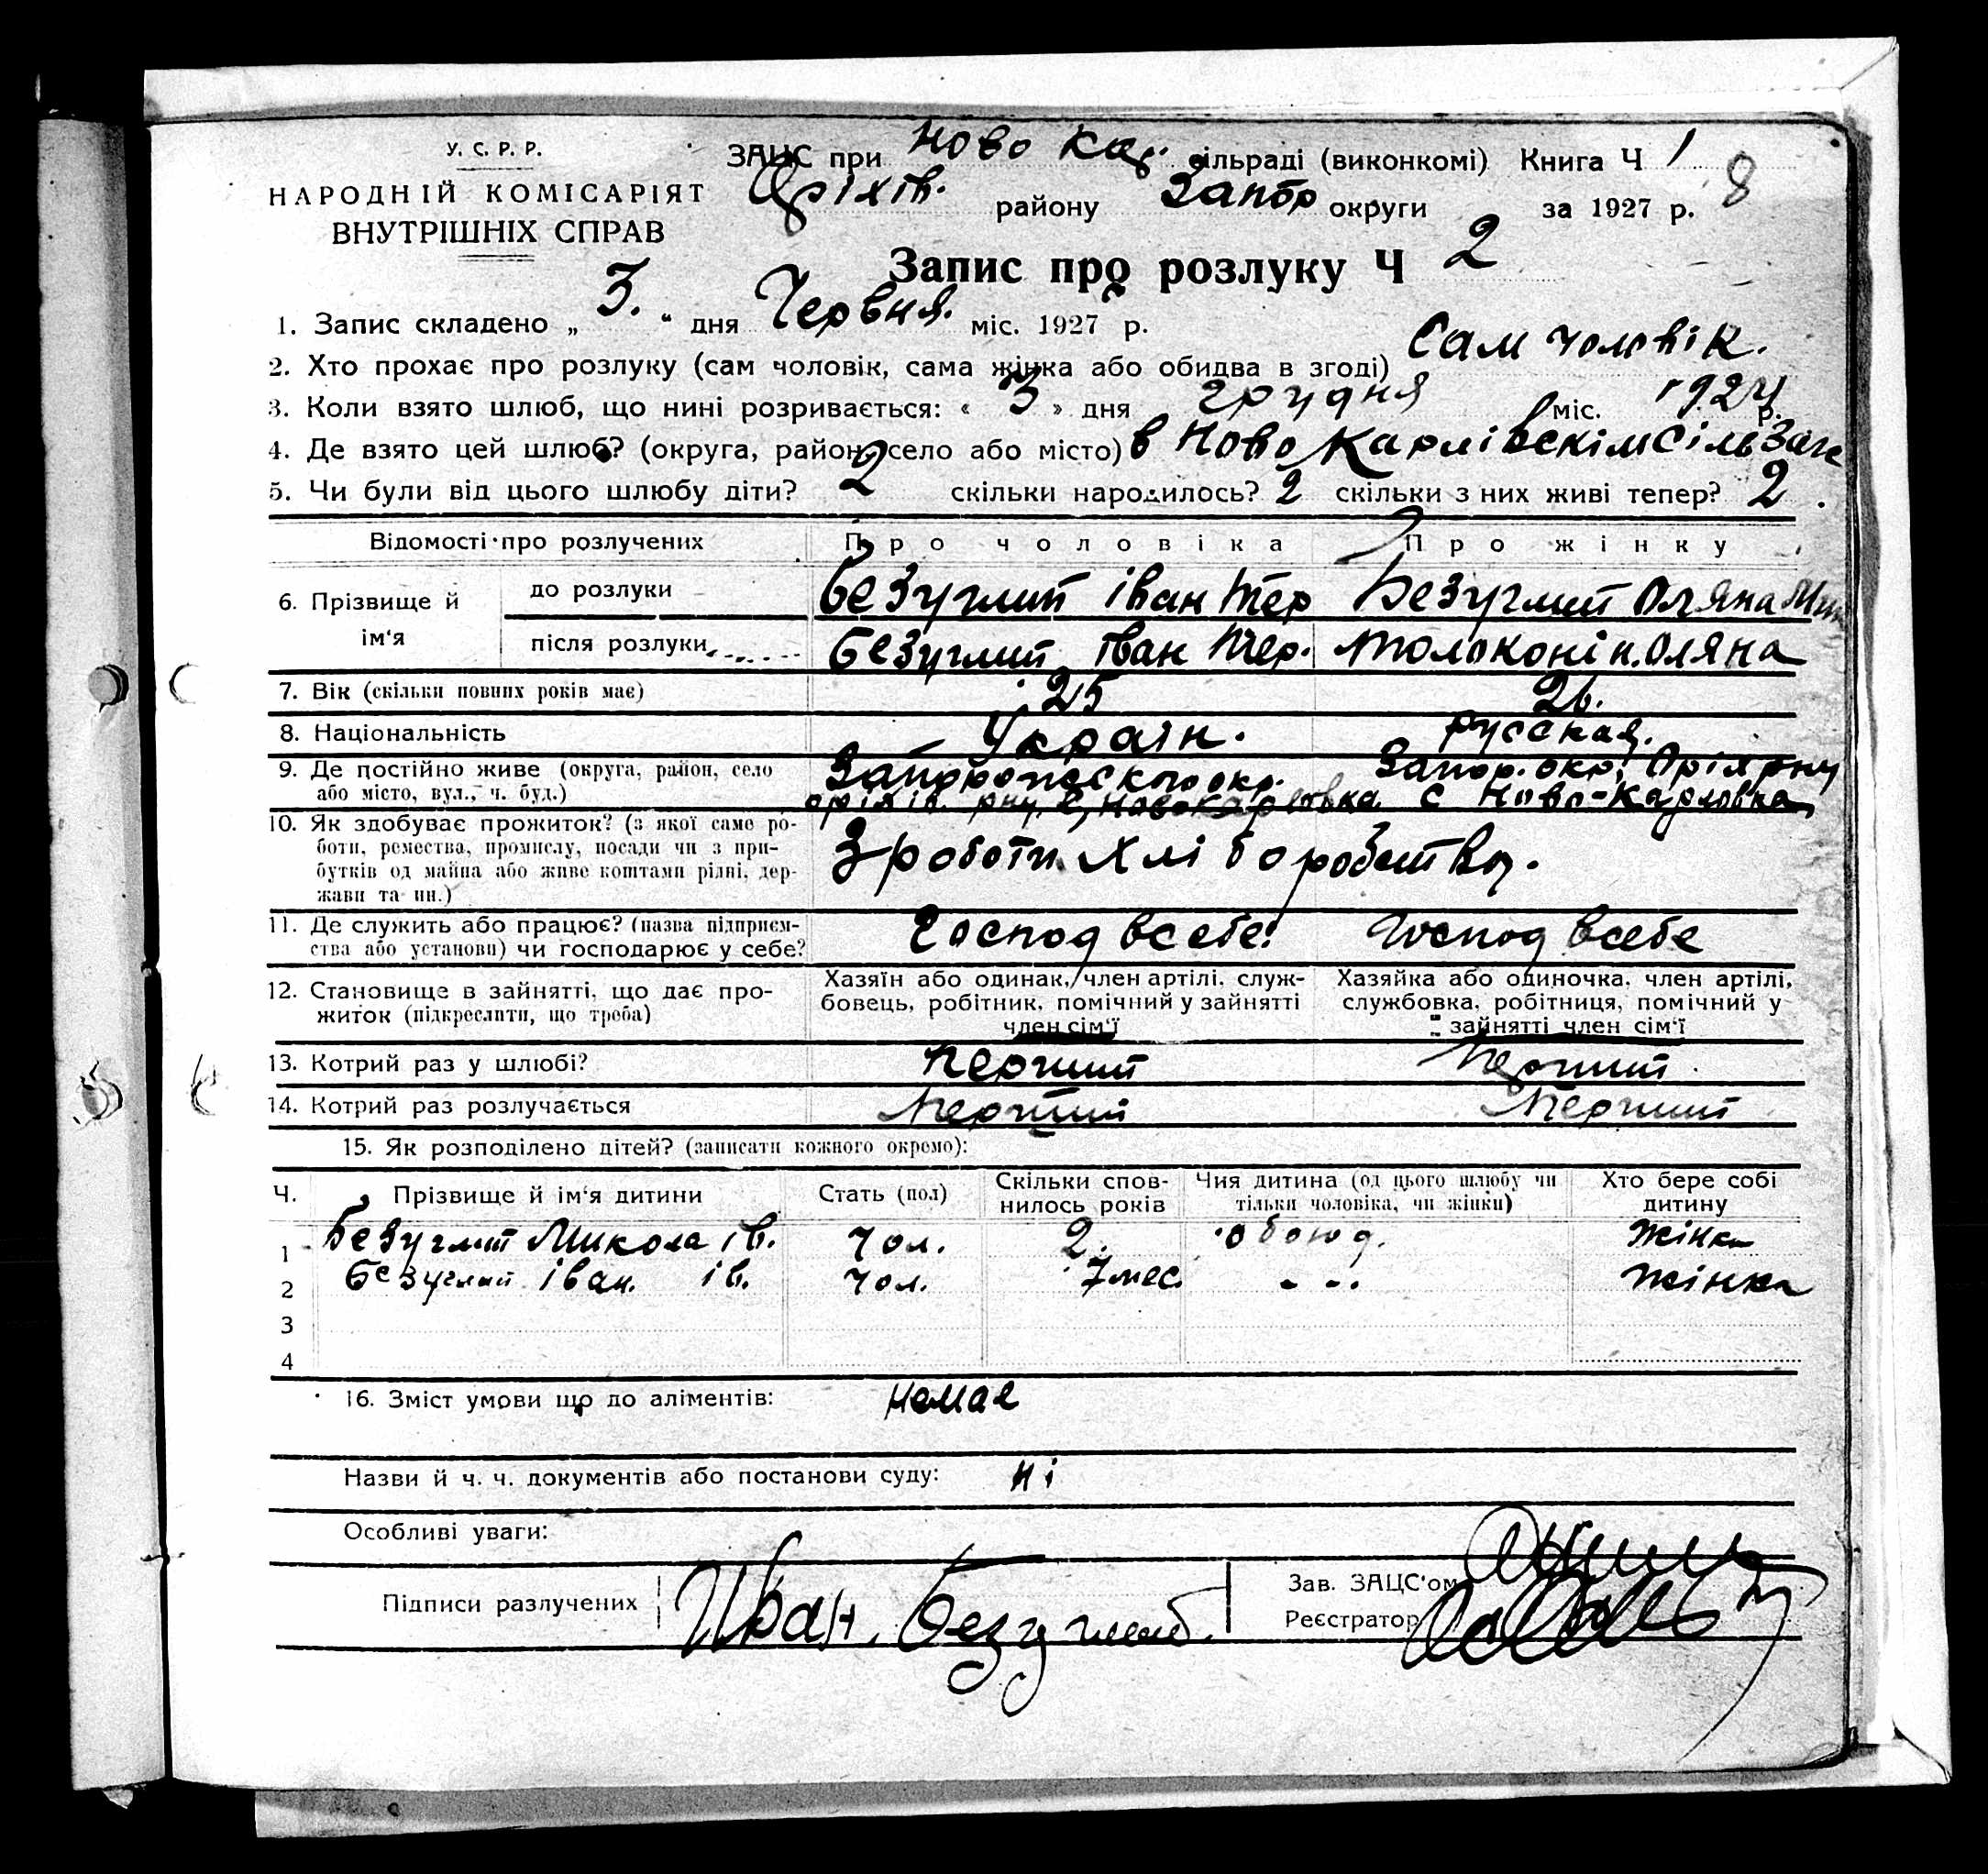 У. С. Р. Р.
НАРОДНІЙ КОМІСАРІЯТ
ВНУТРІШНІХ СПРАВ
ЗАЦС при Ново Кар. сільраді (виконкомі) Книга Ч 1
8
Оріхів. району Запор округи за 1927 р.
Запис про розлуку Ч 2
1. Запис складено „ 3. “ дня Червня. міс. 1927 р.
2. Хто прохає про розлуку (сам чоловік, сама жінка або обидва в згоді) Сам чоловік.
3. Коли взято шлюб, що нині розривається: « 3 » дня грудня міс. 1924 р.
4. Де взято цей шлюб? (округа, район, село або місто) в Ново Карлівскім сіль Загс
5. Чи були від цього шлюбу діти? 2 скільки народилось? 2 скільки з них живі тепер? 2.
Відомості про розлучених Про чоловіка Про жінку
6. Прізвище й ім‘я
до розлуки Безуглий Іван Тер Безуглий Оляна
після розлуки Безуглий Іван Тер. Толоконік. Оляна
7. Вік (скільки повних років має) 25 26.
8. Національність Україн. русская.
9. Де постійно живе (округа, район, село Запорожского окр. Запор. окр, Оріх рну
або місто, вул., ч. буд.) оріхів. рну, с, Новокарловка с Ново-Карловка
10. Як здобуває прожиток? (з якої саме ро-
боти, ремества, промислу, посади чи з при-
бутків од майна або живе коштами рідні, дер-
жави та ин.) З роботи хліборобства.
11. Де служить або працює? (назва підприєм-
ства або установи) чи господарює у себе? Господ всебе! Господ всебе
12. Становище в зайнятті, що дає про-
житок (підкреслити, що треба)
Хазяїн або одинак, член артілі, служ-
бовець, робітник, помічний у зайнятті
член сім‘ї
Хазяйка або одиночка, член артілі,
службовка, робітниця, помічний у
зайнятті член сім‘ї
13. Котрий раз у шлюбі? Перший Перший
14. Котрий раз розлучається Перший Перший
15. Як розподілено дітей? (записати кожного окремо):
Ч. Прізвище й ім‘я дитини Стать (пол) Скільки спов-
нилось років Чия дитина (од цього шлюбу чи
тільки чоловіка, чи жінки) Хто бере собі
дитину
1 Безуглий Микола Ів. чол. 2. обоюд. Жінка
2 Безуглий Іван. Ів. чол. 7 мес. - - . Жінка
3
4
16. Зміст умови що до аліментів: немає
Назви й ч. ч. документів або постанови суду: ні
Особливі уваги:
Підписи разлучених Иван. Безуглый.
Зав. ЗАЦС‘ом
Реєстратор